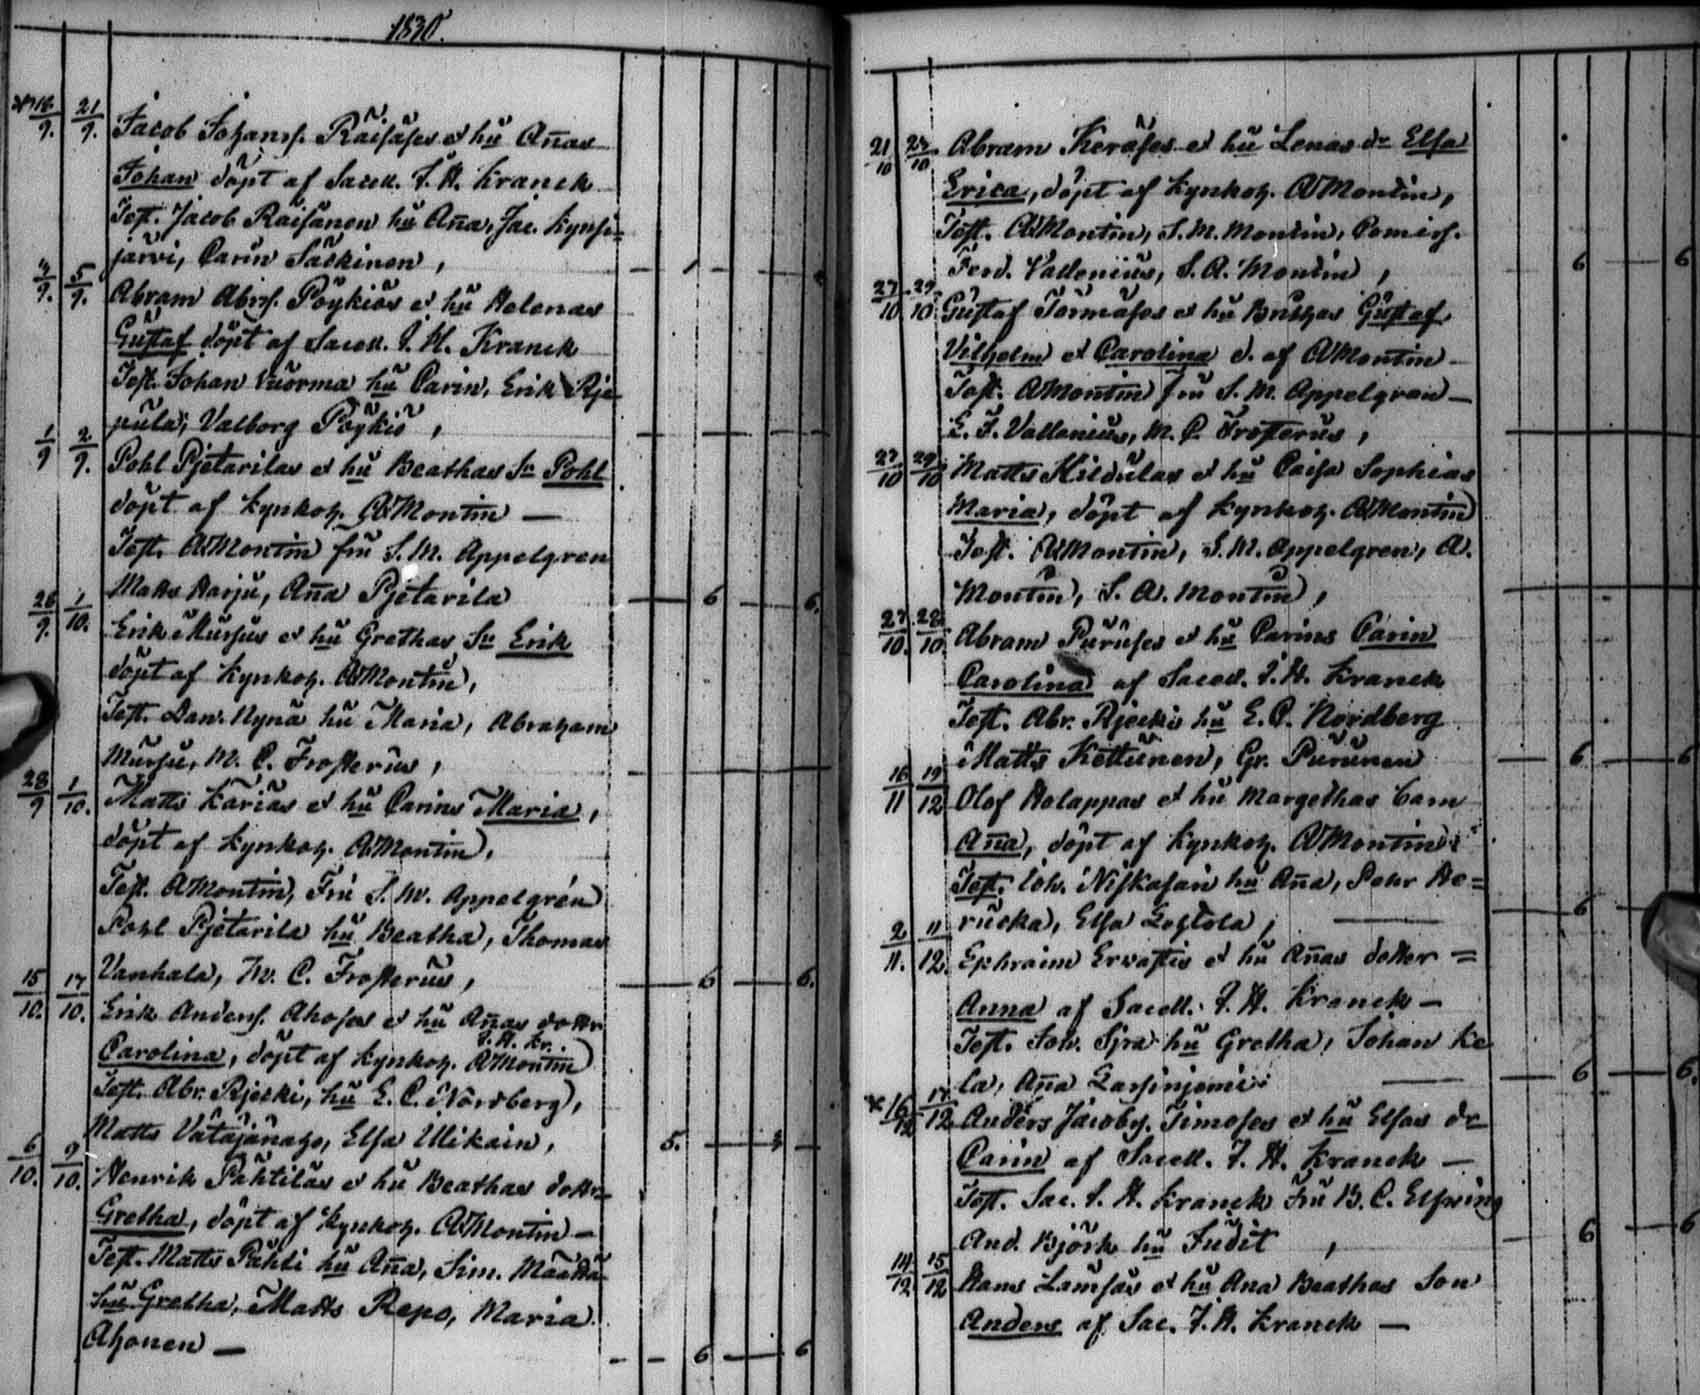 1830.
18/9. 21/9. Jacob Johanss. Räisäses et hu Añas
Johan döpt af Sacell. J. H. Kranck
Test. Jacob Raisänen hu Aña, Jac. Kynsi=
järvi, Carin Säskinen,
4/9. 5/9. Abram Abrss. Pöykiös et hu Helenas
Gustaf döpt af Sacell. J. H. Kranck
Test. Johan Vuorma hu Carin, Erik Rje
pula, Valborg Pöykiö,
1/9 2/9. Pohl Pjetarilas et hu Beathas Sn Pohl
döpt af Kyrkoh. AMontin —
Test. AMontin fru S. M. Appelgren
Matts Harju, Aña Pjetarila 6 6.
26/9. 1/10. Erik Mursus et hu Grethas Sn Erik
döpt af Kyrkoh. AMontin,
Test. Dan. Nynä hu Maria, Abraham
Mursu, M. C. Frosterus,
28/9 1/10. Matts Karias et hu Carins Maria,
döpt af Kyrkoh. AMontin,
Test. AMontin, Fru S. M. Appelgrén
Pohl Pjetarila hu Beatha, Thomas
Vanhala, M. C. Frosterus, 6 6.
15/10. 17/10. Erik Anderss. Ahoses et hu Añas dotter
J. H. Kr.
Carolina, döpt af Kyrkoh. AMontin
Test. Abr. Rjecki, hu E. C. Nordberg,
Matts Vätäjänaho, Elsa Ulikain, 5.
6/10. 9/10. Henrik Pähtiläs et hu Beathas dotter
Gretha, döpt af Kyrkoh. AMontin —
Test. Matts Pähti hu Aña, Sim. Määttä
hu Gretha, Matts Repo, Maria
Ahonen — 6 6
21/10 24/10 Abram Keräses et hu Lenas dr Elsa
Erica, döpt af Kyrkoh. AMontin,
Test. AMontin, S. M. Montin, Comiss.
Ferd. Vallenius, S. A. Montin, 6 6
27/10 29/10 Gustaf Törmäses et hu Brithas Gustaf
Vilhelm et Carolina d. af AMontin
Test. AMontin fru S. M. Appelgren —
E. J. Vallenius, M. C. Frosterus,
27/10 29/10 Matts Kildulas et hu Caisa Sophias
Maria, döpt af Kyrkoh. AMontin
Test. AMontin, S. M. Appelgren, A.
Montin, S. A. Montin,
27/10. 28/10. Abram Puruses et hu Carins Carin
Carolina af Sacell. J. H. Kranck
Test. Abr. Rjecki hu E. C. Nordberg
Matts Kettunen, Gr. Purunen 6 6
16/11 19/12 Olof Halappas et hu Margethas barn
Aña, döpt af Kyrkoh. AMontin
Test. Joh. Niskasari hu Aña, Pehr He=
rucka, Elsa 6
2/11. 11/12. Ephraim Ervastis et hu Añas dotter =
Anna af Sacell. J. H. Kranck —
Test. Joh. Sjra hu Gretha, Johan Ke
la, Aña 6 6.
16/12 17/12 Anders Jacobss. Timoses et hu Elsas dr
Carin af Sacell. J. H. Kranck —
Test. Sac. J. H. Kranck Fru B. C. Elfving
And. Björk hu Judit, 6 6
14/12 15/12 Hans Lamsas et hu Ana Beathas Son
Anders af Sac. J. H. Kranck —